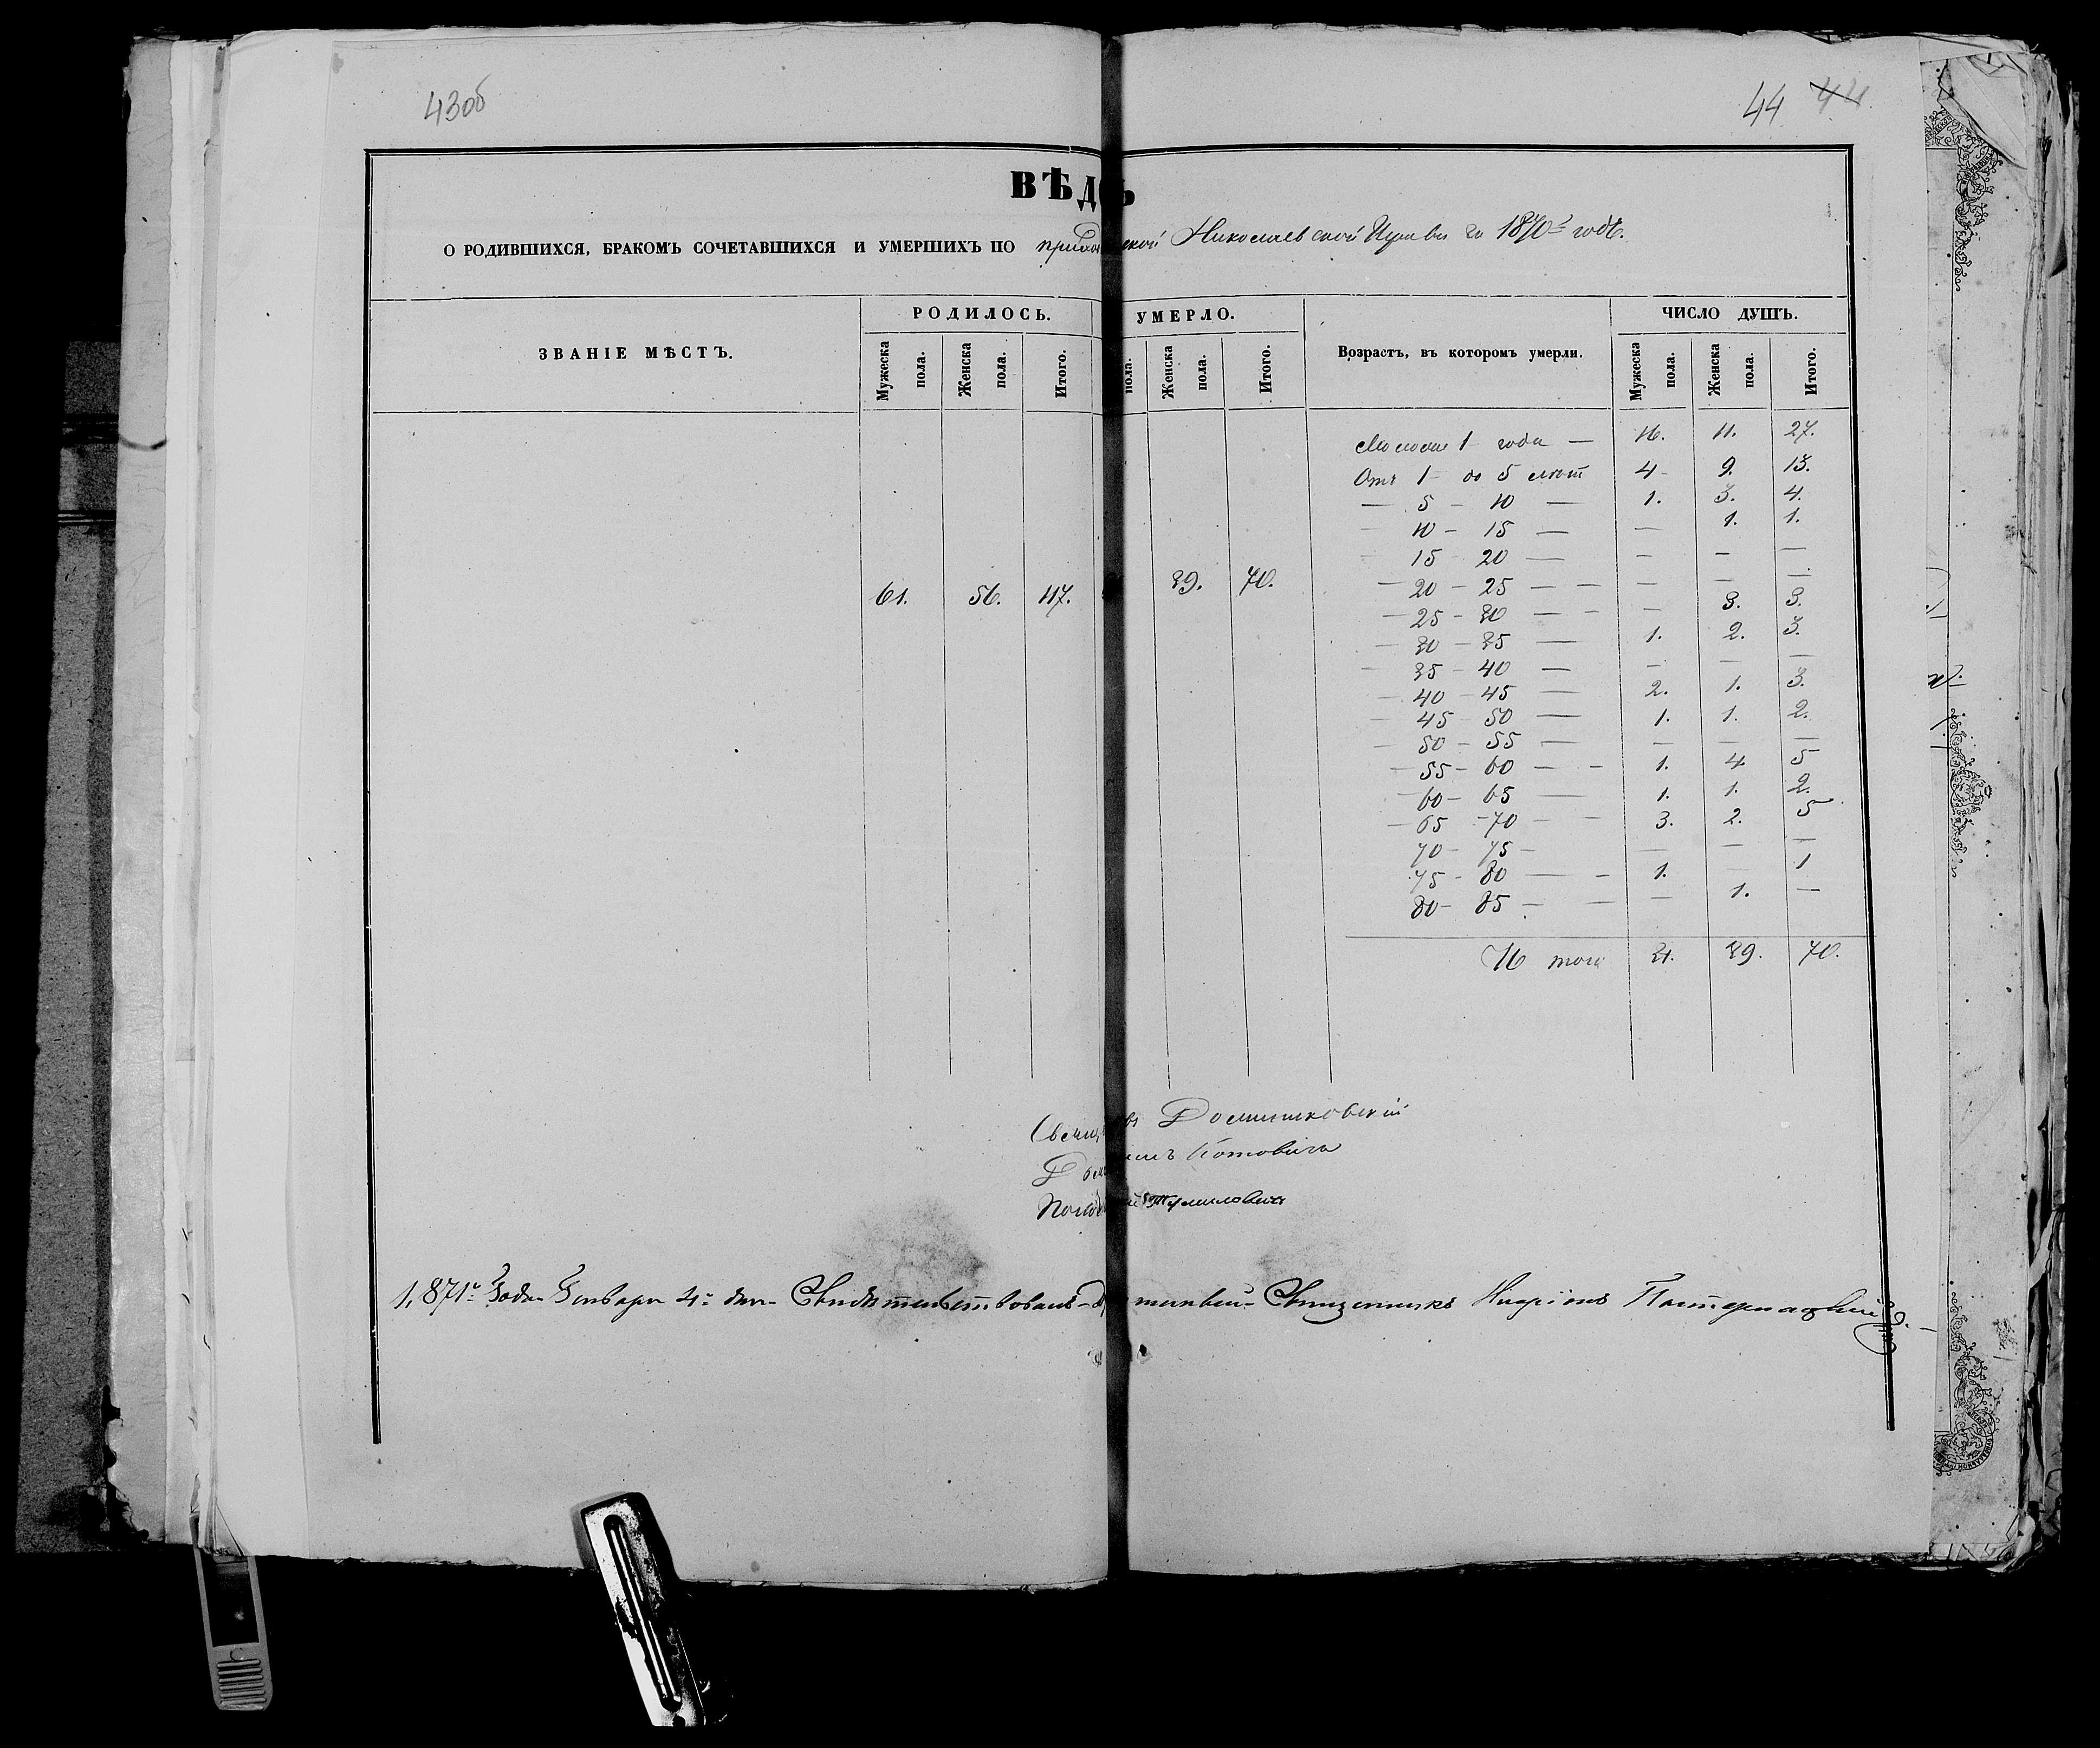 43об
44 44
ВѢД Ь
О РОДИВШИХСЯ, БРАКОМЪ СОЧЕТАВШИХСЯ И УМЕРШИХЪ ПО ской Николаевской Церкви за 1870й годъ.
ЗВАНІЕ МѢСТЪ.
РОДИЛОСЬ.
УМЕРЛО.
Возрастъ, въ которомъ умерли.
ЧИСЛО ДУШЪ.
Мужеска пола.
Женска пола.
Итого.
пола.
Женска пола.
Итого.
Мужеска пола.
Женска пола.
Итого.
61. 56. 117. 39. 70.
1 года — 16. 11. 27.
Отъ 1 — до 5 лѣтъ 4 - 9. 13.
— 5 — 10 — 1. 3. 4.
— 10 — 15 — — 1. 1.
15 20 — — — —
— 20 — 25 — — — — —
— 25 — 30 — - — 3. 3.
— 30 — 35 — 1. 2. 3.
— 35 — 40 — — — —
— 40 — 45 — 2. 1. 3.
— 45 50 — 1. 1. 2.
— 50 — 55 — — — —
— 55 — 60 — - 1. 4 5
— 60 — 65 — 1. 1. 2.
— 65 — 70 — - 3. 2. 5
70 — 75 — — — —
75 - 80 — - 1. — 1
80 — 85 — — — 1. —
Итого 31. 39. 70.
Домашковскій
Котовичъ
1,871го Года Января 4го дня Свидѣтельствовалъ Священникъ Иларіонъ Пастернацкій